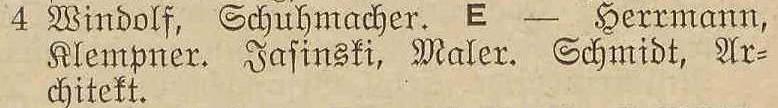 4 Windolf, Schuhmacher. E — Herrmann,
Klempner. Jasinski, Maler. Schmidt, Ar-
chitekt.